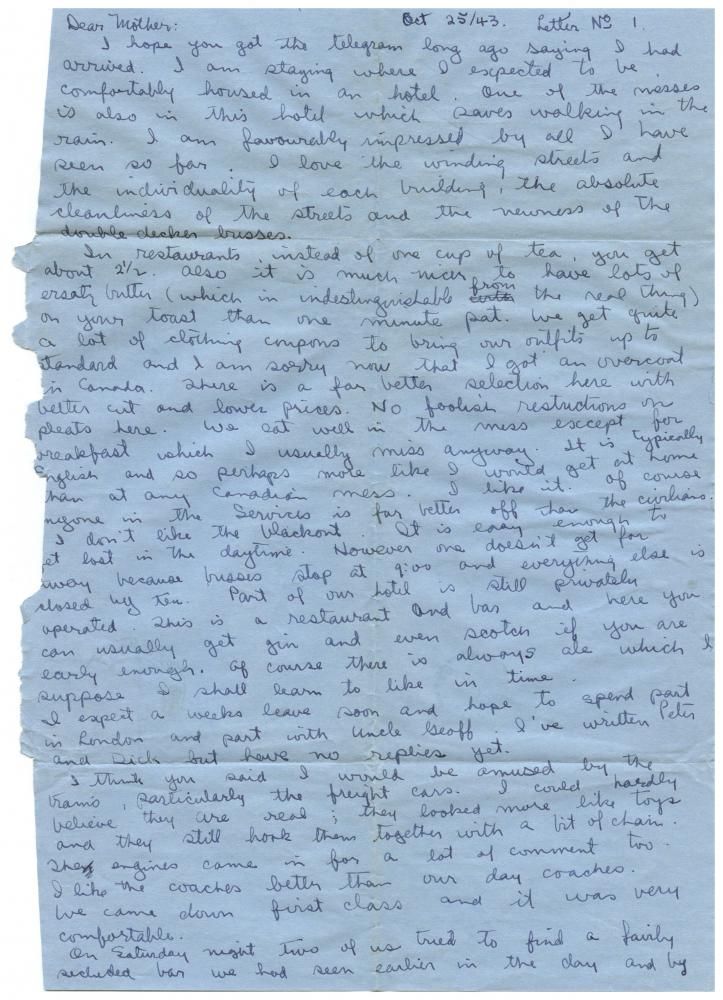 Dear Mother: Oct 25/43. Letter No 1.
I hope you got the telegram long ago saying I had
arrived. I am staying where I expected to be,
comfortably housed in an hotel. One of the messes
is also in this hotel which saves walking in the
rain. I am favourably impressed by all I have
seen so far. I love the winding streets and
the individuality of each building, the absolute
cleanliness of the streets and the newness of the
double decker busses.
In restaurants, instead of one cup of tea, you get
about 2 1/2. Also it is much nicer to have lots of
ersatz butter (which in indestinguishable from the real thing)
on your toast than one minute pat. We get quite
a lot of clothing coupons to bring our outfits up to
standard and I am sorry now that I got an overcoat
in Canada. There is a far better selection here with
better cut and lower prices. No foolish restrictions on
pleats here. We eat well in the mess except for
breakfast which I usually miss anyway. It is typically
English and so perhaps more like I would get at home
than at any Canadian mess. I like it. Of course
anyone in the Services is far better off than the civilians.
I don't like the blackout. It is easy enough to
et lost in the daytime. However one doesn't get far
away because busses stop at 9:00 and everything else is
closed by ten. Part of our hotel is still privately
operated This is a restaurant and bar and here you
can usually get gin and even scotch if you are
early enough. Of course there is always ale which I
suppose I shall learn to like in time.
I expect a weeks leave soon and hope to spend part
in London and part with Uncle Geoff. I've written Peter
and Dick but have no replies yet.
I think you said I would be amused by the
trains, particularly the freight cars. I could hardly
believe they are real; they looked more like toys
and they still honk them together with a bit of chain.
The engines came in for a lot of comment too.
I like the coaches better than our day coaches.
We came down first class and it was very
comfortable.
On Saturday night two of us tried to find a fairly
secluded bar we had seen earlier in the day and by